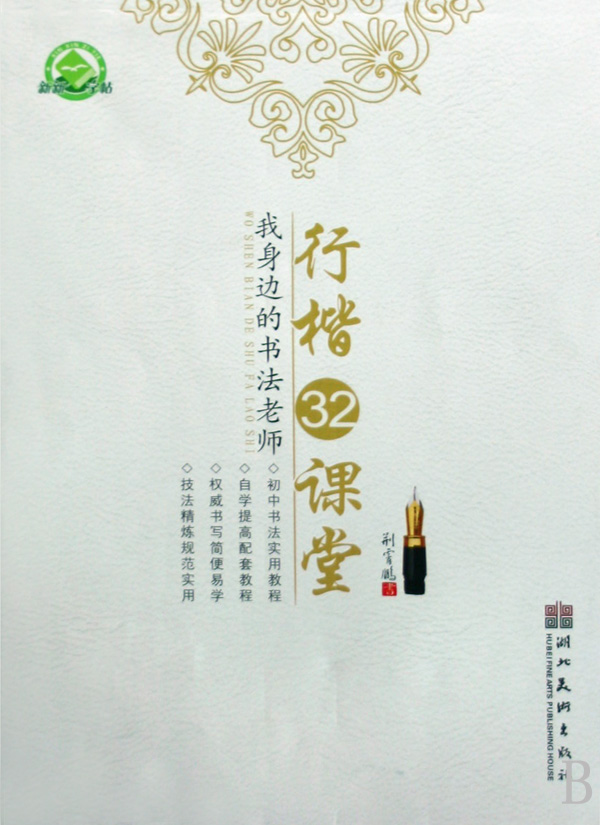 新新字帖
行楷32课堂
我身边的书法老师
WO SHEN BIAN DE SHU FA LAO SHI
◇初中书法实用教程
◇自学提高配套教程
◇权威书写简便易学
◇技法精炼规范实用
荆霄鹏
湖北美术出版社
HUBEI FINE ARTS PUBLISHING HOUSE
B